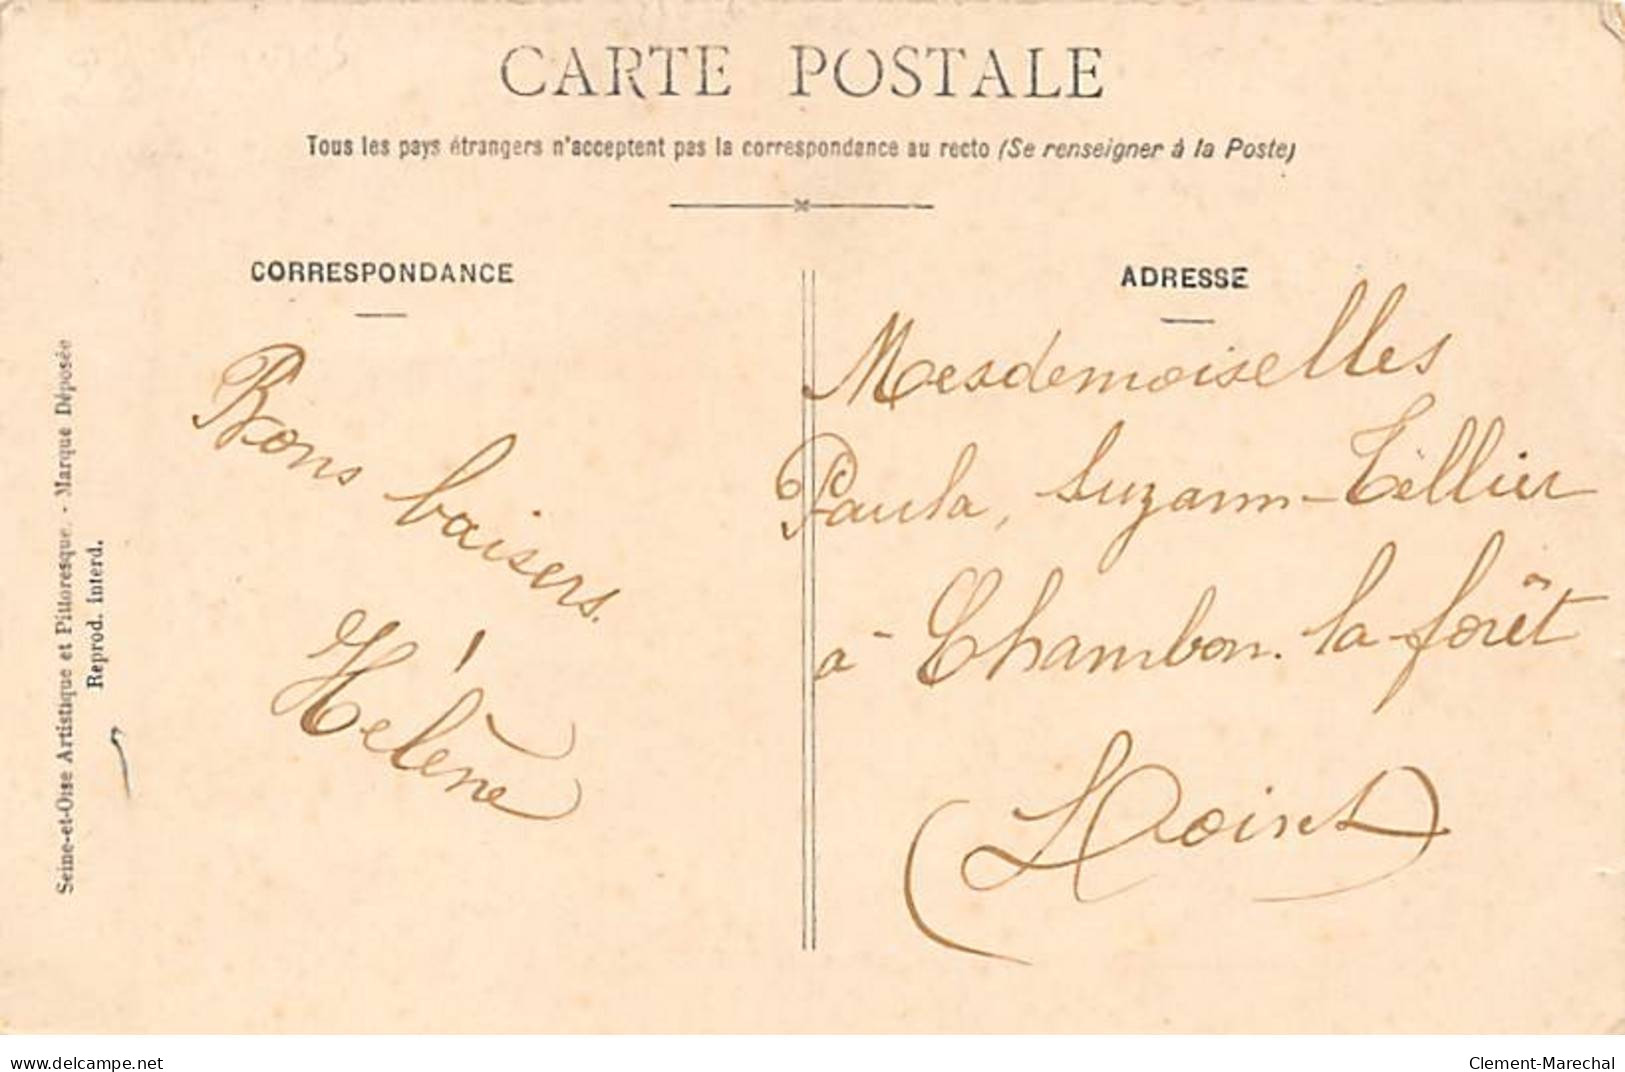 CARTE POSTALE
Tous les pays étrangers n'acceptent pas la correspondance au recto (Se renseigner à la Poste)
CORRESPONDANCE
Bons baisers.
Hélène
ADRESSE
Mesdemoiselles
Paula, Suzann-Tellier
à Chambon-la-forêt
(Loiret)
Seine-et-Oise Artistique et Pittoresque. - Marque Déposée
Reprod. interd.
www.delcampe.net
Clement-Marechal